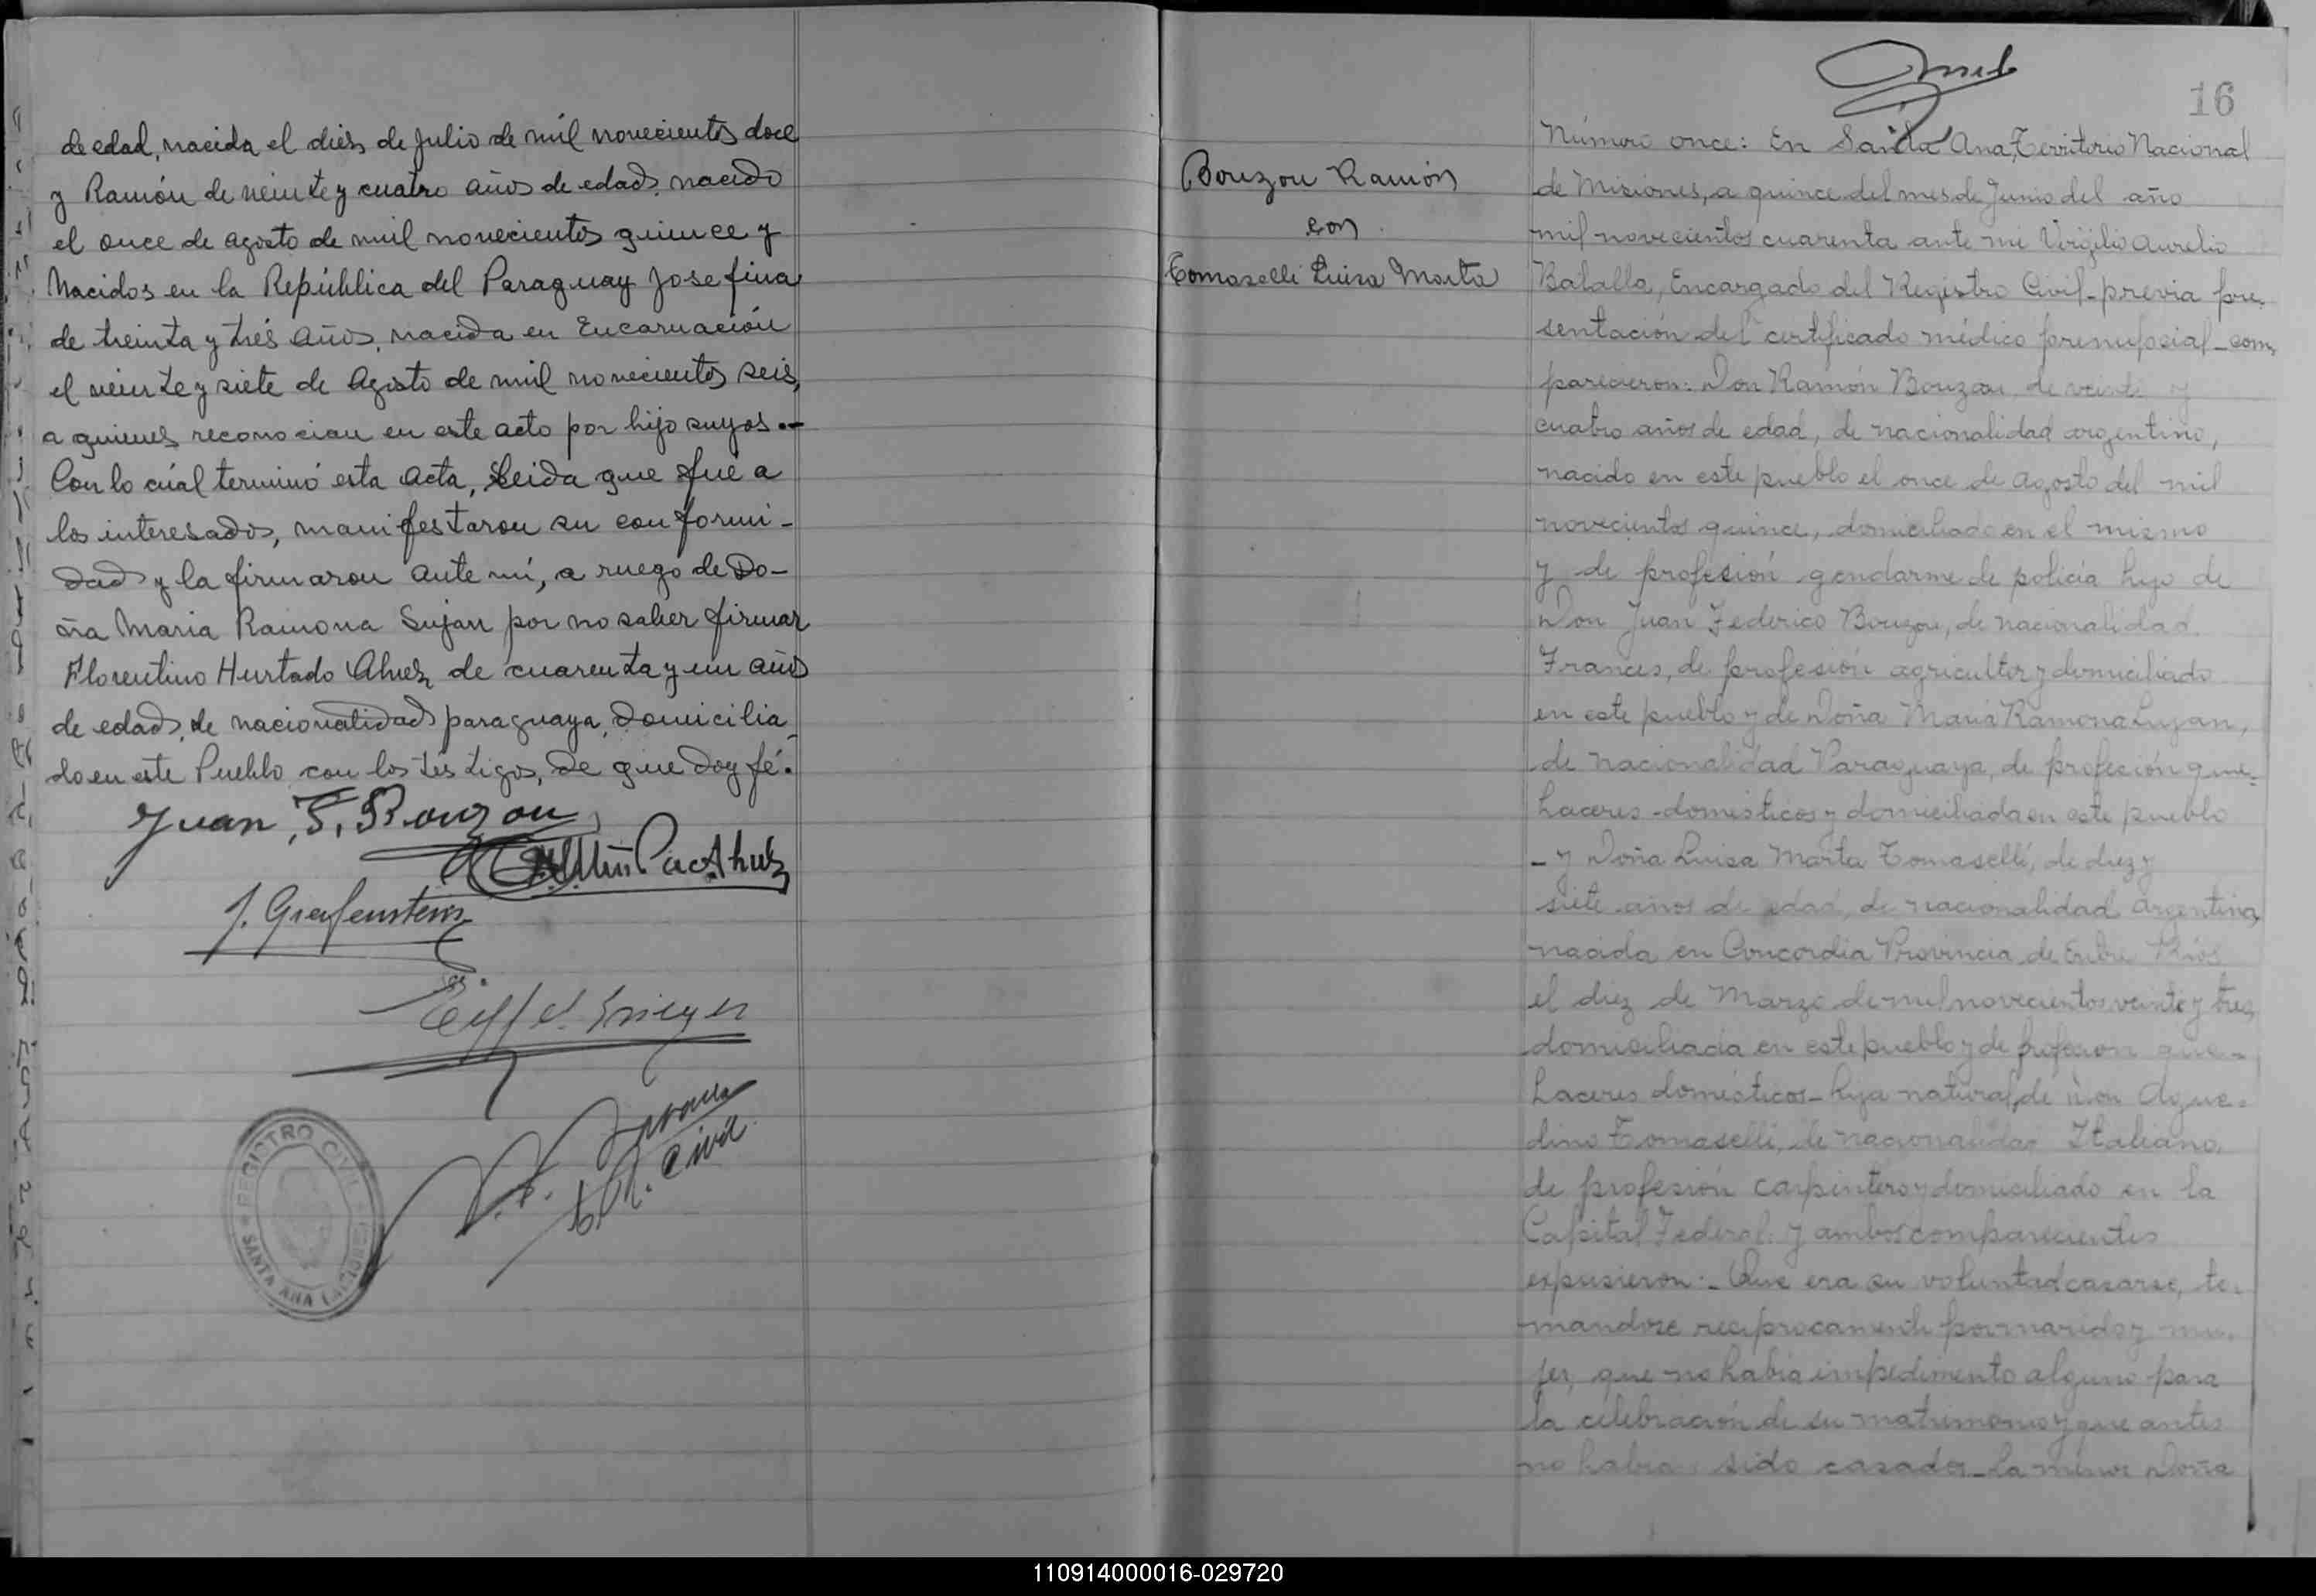 de edad, nacida el diez de Julio de mil novecientos doce
y Ramón de veinte y cuatro años de edad, nacido
el once de agosto de mil novecientos quince y
Nacidos en la República del Paraguay Josefina
de treinta y trés años, nacida en Encarnación
el veinte y siete de Agosto de mil novecientos seis,
a quienes reconocian en este acto por hijo suyos.-
Con lo cúal terminó esta acta, Leida que fue a
los interesados, manifestaron su conformi-
dad y la firmaron ante mí, a ruego de Do-
ña Maria Ramona Lujan por no saber firmar
Florentino Hurtado Alvez de cuarenta y un años
de edad, de nacionalidad paraguaya, domicilia
do en este Pueblo con los testigos, de que doy fé.
Juan F. Bouzou
J. Grafenstein
R. Civil
REGISTRO CIVIL
SANTA ANA
16
Bouzou Ramón
con
Tomaselli Luisa Marta
Número once: En Santa Ana, Territorio Nacional
de Misiones, a quince del mes de Junio del año
mil novecientos cuarenta ante mi Virgilio Aurelio
Batalla, Encargado del Registro Civil - previa pre-
sentación del certificado médico prenupcial - com-
parecieron: Don Ramón Bouzou, de veinte y
cuatro años de edad, de nacionalidad argentino,
nacido en este pueblo el once de Agosto del mil
novecientos quince, domiciliado en el mismo
y de profesión gendarme de policía hijo de
Don Juan Federico Bouzou, de nacionalidad
Frances, de profesión agricultor y domiciliado
en este pueblo y de Doña Maria Ramona Lujan,
de nacionalidad Paraguaya, de profesión que-
haceres-domésticos y domiciliada en este pueblo
- y Doña Luisa Marta Tomaselli, de diez y
siete años de edad, de nacionalidad argentina,
nacida en Concordia Provincia de Entre Ríos
el diez de Marzo de mil novecientos veinte y tres,
domiciliada en este pueblo y de profesion que-
haceres domésticos - hija natural de Don
Tomaselli, de nacionalidad Italiano,
de profesión carpintero y domiciliado en la
Capital Federal. Y ambos comparecientes
expusieron:- Que era su voluntad casarse, to-
mandose reciprocamente por marido y mu-
jer, que no habia impedimento alguno para
la celebración de su matrimonio y que antes
no habia sido casados - La menor Doña
110914000016-029720